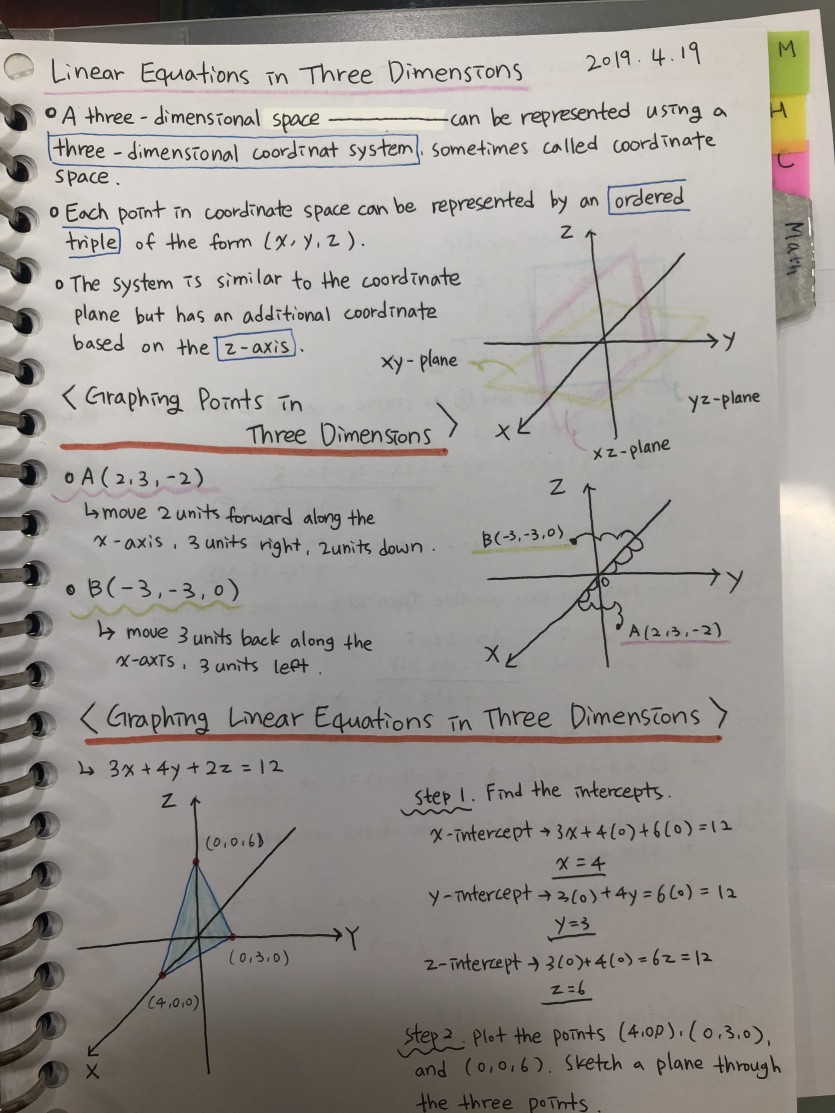 Linear Equations in Three Dimensions
2019. 4. 19
M
H
C
Math
A three-dimensional space can be represented using a
three-dimensional coordinat system, sometimes called coordinate
space.
Each point in coordinate space can be represented by an ordered
triple of the form (x, y, z).
The system is similar to the coordinate
plane but has an additional coordinate
based on the z-axis.
Z
Y
X
xy-plane
yz-plane
xz-plane
< Graphing Points in
Three Dimensions >
A(2,3,-2)
↳ move 2 units forward along the
x-axis, 3 units right, 2 units down.
B(-3,-3,0)
↳ move 3 units back along the
x-axis, 3 units left.
Z
B(-3,-3,0)
Y
0
A(2,3,-2)
X
< Graphing Linear Equations in Three Dimensions >
↳ 3x+4y+2z=12
Z
(0,0,6)
Y
(0,3,0)
(4,0,0)
X
Step 1. Find the intercepts.
x-intercept → 3x+4(0)+6(0)=12
x=4
y-intercept → 3(0)+4y=6(0)=12
y=3
z-intercept → 3(0)+4(0)=6z=12
z=6
Step 2. Plot the points (4,0,0), (0,3,0),
and (0,0,6). Sketch a plane through
the three points.